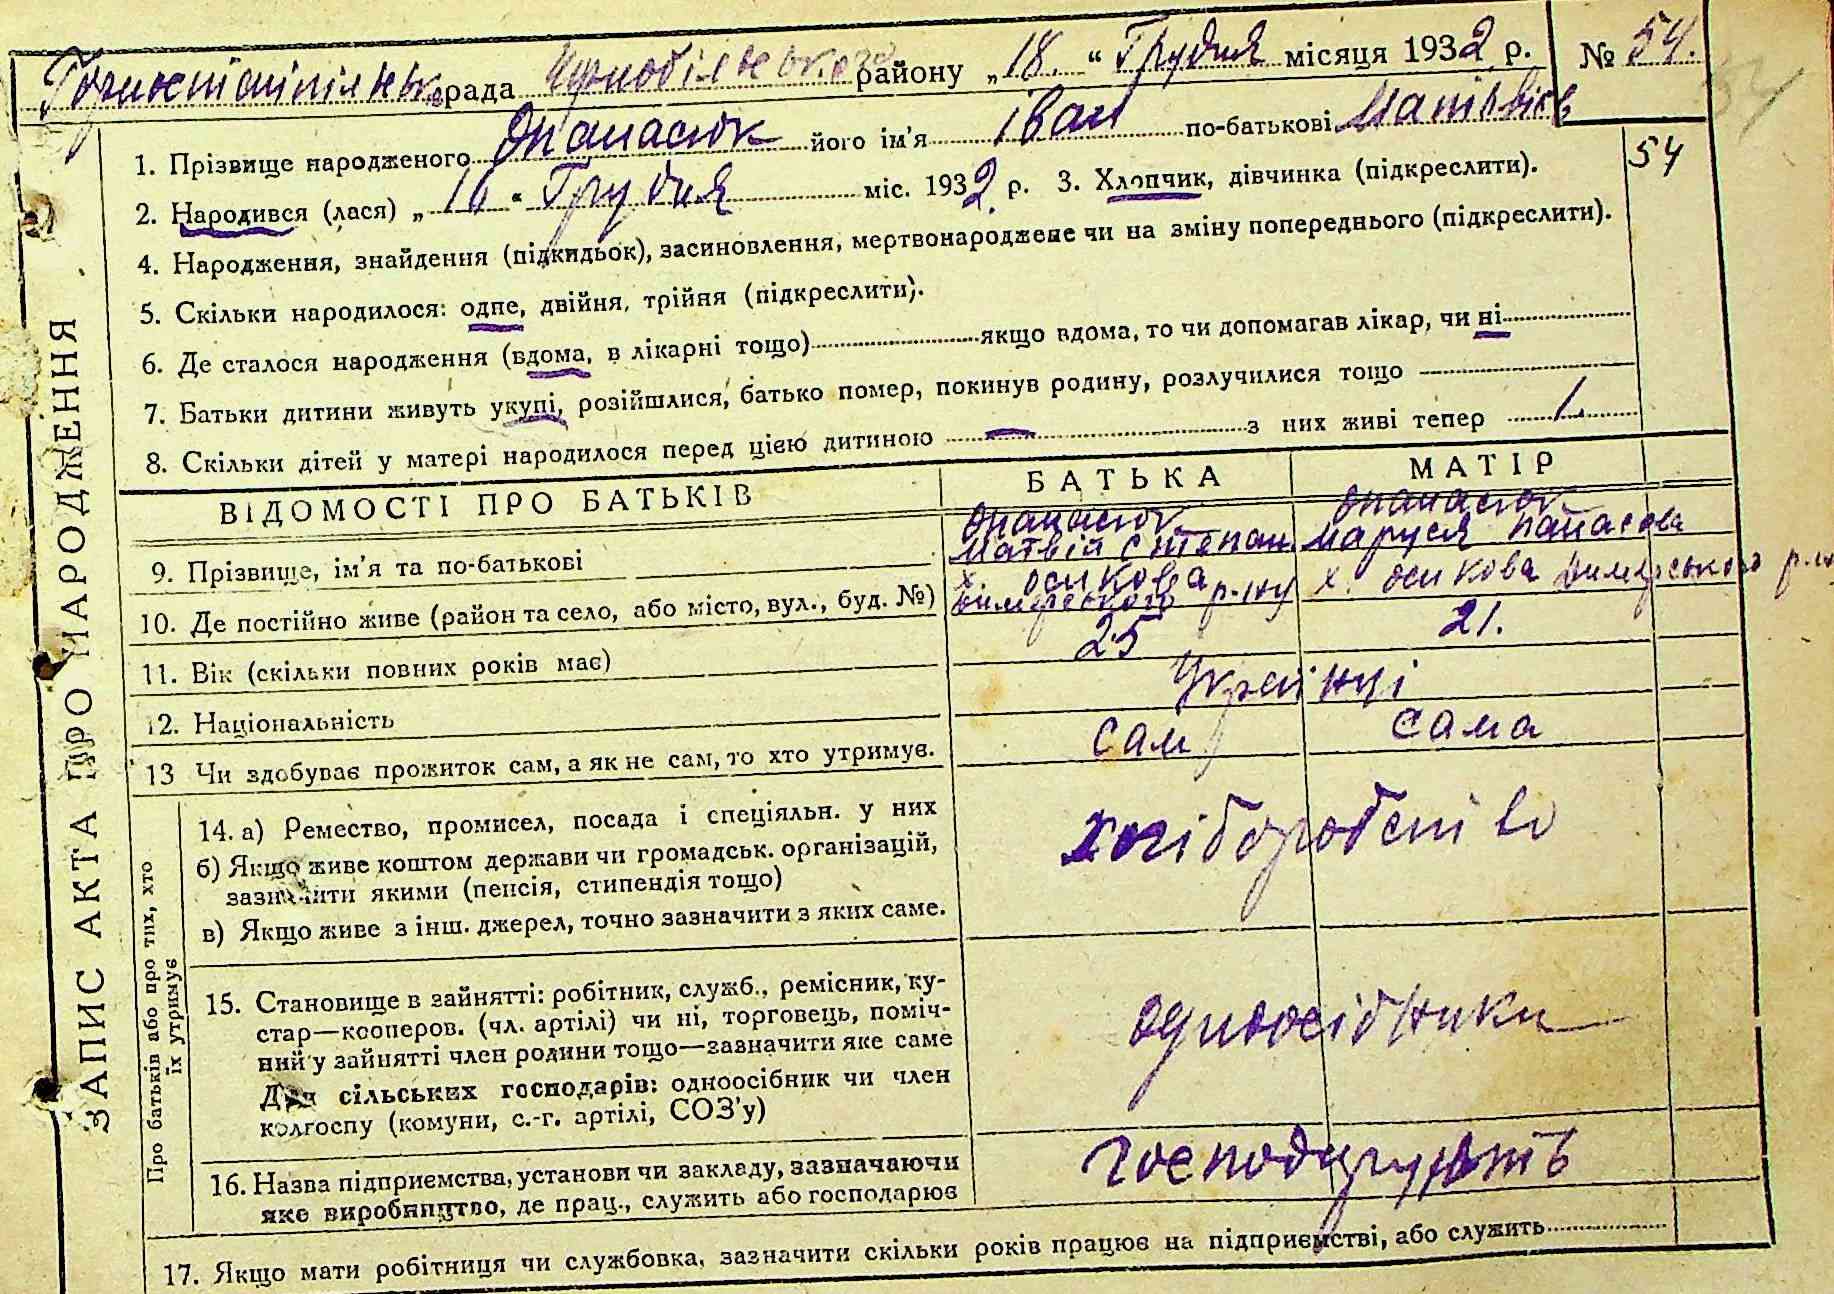 Горностайпільська рада Чорнобільського району „18.“ Грудня місяця 1932 р. № 54.
1. Прізвище народженого Опанасюк його ім'я Іван по-батькові
54
2. Народився (лася) „16“ Грудня міс. 1932 р. 3. Хлопчик, дівчинка (підкреслити).
4. Народження, знайдення (підкидьок), засиновлення, мертвонароджене чи на зміну попереднього (підкреслити).
5. Скільки народилося: одне, двійня, трійня (підкреслити).
6. Де сталося народження (вдома, в лікарні тощо) якщо вдома, то чи допомагав лікар, чи ні
7. Батьки дитини живуть укупі, розійшлися, батько помер, покинув родину, розлучилися тощо —
8. Скільки дітей у матері народилося перед цією дитиною — з них живі тепер 1.
ЗАПИС АКТА ПРО НАРОДЖЕННЯ
ВІДОМОСТІ ПРО БАТЬКІВ БАТЬКА МАТІР
Опанасюк Опанасюк
9. Прізвище, ім'я та по-батькові Матвій Степан. Маруся Панасова
х. Осикова х. Осикова Димерського р-ну
10. Де постійно живе (район та село, або місто, вул., буд. №) Димерського р-ну
11. Вік (скільки повних років має) 25 21.
12. Національність Українці
13 Чи здобуває прожиток сам, а як не сам, то хто утримує. сам сама
Про батьків або про тих, хто їх утримує
14. а) Ремество, промисел, посада і спеціяльн. у них хліборобство
б) Якщо живе коштом держави чи громадськ. організацій,
зазначити якими (пенсія, стипендія тощо)
в) Якщо живе з інш. джерел, точно зазначити з яких саме.
15. Становище в зайнятті: робітник, служб., ремісник, ку-
стар—кооперов. (чл. артілі) чи ні, торговець, поміч-
ний у зайнятті член родини тощо—зазначити яке саме
одноосібники
Для сільських господарів: одноосібник чи член
колгоспу (комуни, с.-г. артілі, СОЗ'у)
16. Назва підприємства, установи чи закладу, зазначаючи
яке виробництво, де прац., служить або господарює
господарують
17. Якщо мати робітниця чи службовка, зазначити скільки років працює на підприємстві, або служить